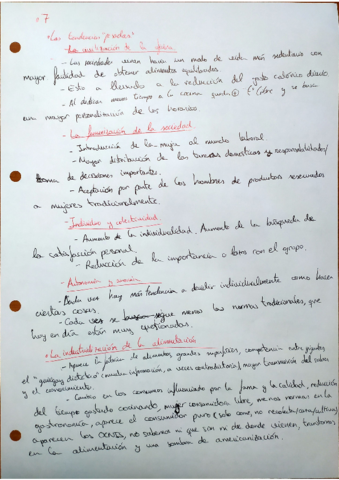 7
"Las tendencias pesadas"
- La civilización de la oficina
- Las sociedades viran hacia un modo de vida más sedentario con
mayor facilidad de obtener alimentos equilibrados.
- Esto a llevado a la reducción del gasto calórico diario
- Al dedicar menos tiempo a la cocina y se busca
un mayor personalización de los horarios.
- La feminización de la sociedad
- Introducción de la mujer al mundo laboral.
- Mayor distribución de las tareas domésticas y responsabilidades/
toma de decisiones importantes.
- Aceptación por parte de los hombres de productos reservados
a mujeres tradicionalmente.
- Individuo y colectividad.
- Aumento de la individualidad. Aumento de la búsqueda de
la satisfacción personal.
- Reducción de la importancia o lazos con el grupo.
- Autonomía y
- Cada vez hay más tendencia a decidir individualmente como hacer
ciertas cosas.
- Cada vez se sigue menos las normas tradicionales, que
hoy en día están muy cuestionadas.
• La industrialización de la alimentación
- Aparece la de alimentos, grandes superficies, competencia entre
el " " ( información, a veces contradictoria), mayor transmisión del saber
y el conocimiento.
- Cambio en los consumos influenciado por la fama y la calidad, reducción
del tiempo gastado cocinando, mayor consumidor libre, menos normas en la
gastronomía, aparece el consumidor puro (solo come, no recolecta/caza/cultiva),
aparecen los OCNIS, no sabemos ni que son ni de donde vienen, trastornos
en la alimentación y una sombra de americanización.